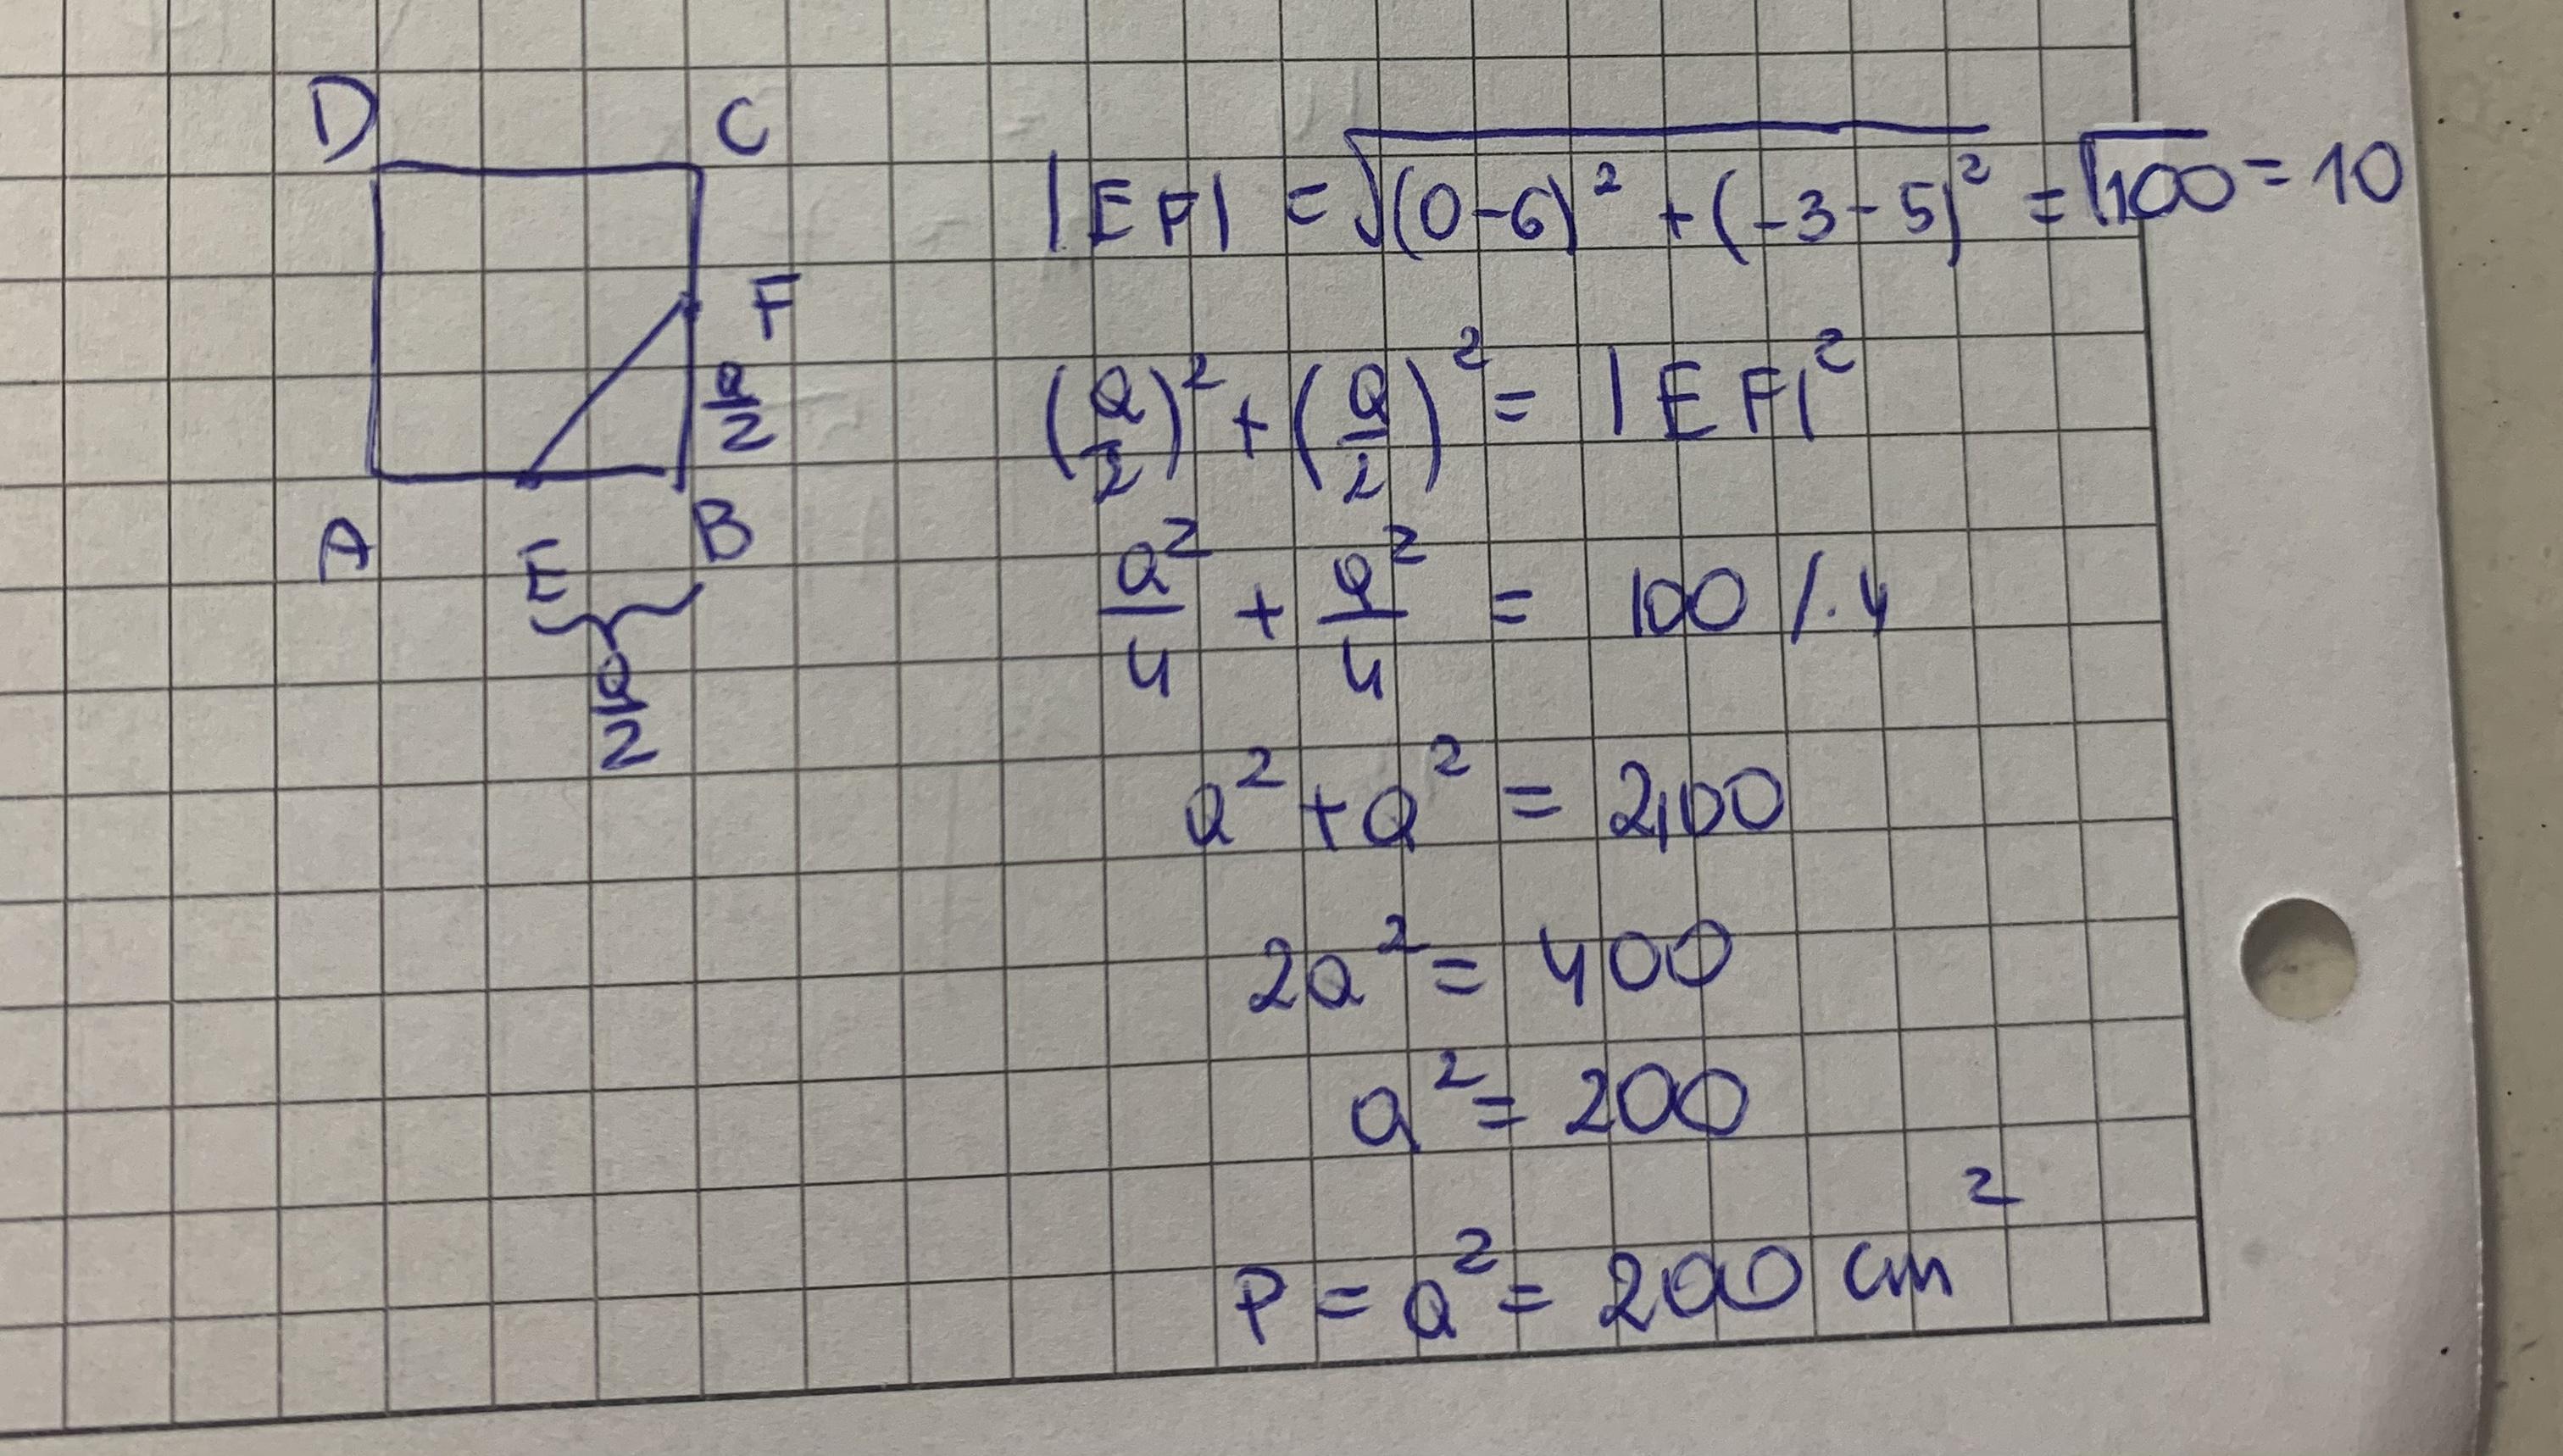 D C
F
a/2
A E B
a/2
|EF| = √((0-6)² + (-3-5)²) = √100 = 10
(a/2)² + (a/2)² = |EF|²
a²/4 + a²/4 = 100 /·4
a² + a² =
2a² = 400
a² = 200
P = a² = 200 cm²